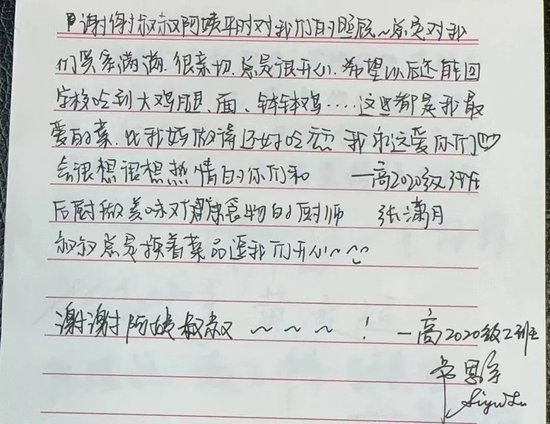 谢谢叔叔阿姨平时对我们的照顾~总是对我
们笑意满满,很亲切,总是很开心,希望以后还能回
学校吃到大鸡腿、面、钵钵鸡....这些都是我最
爱的菜,比我妈做得还好吃 我永远爱你们♡
会很想很想热情的你们和 一高2020级
后厨做美味对健康食物的厨师 张潇月
叔叔总是换着菜品逗我们开心~~
谢谢阿姨叔叔~~~~! 一高2020级2班
思宇
Siyu